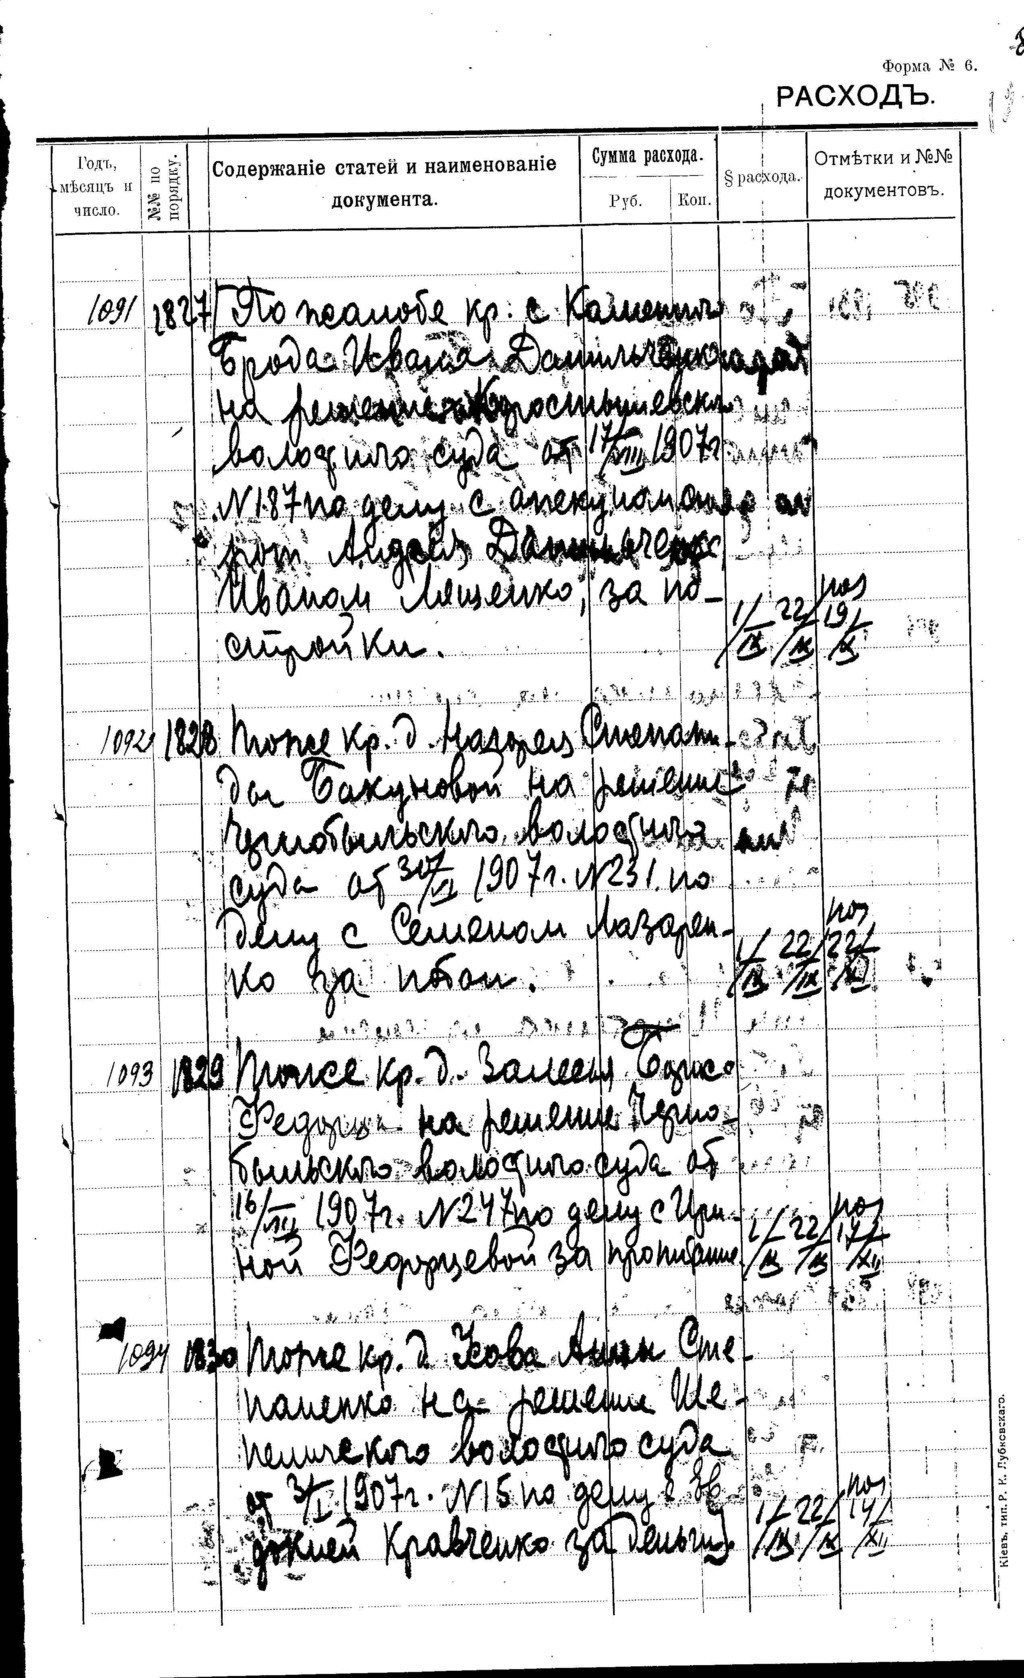 Форма № 6.
РАСХОДЪ.
Годъ, мѣсяцъ и число.
№№ по порядку.
Содержаніе статей и наименованіе документа.
Сумма расхода.
Руб. Коп.
§ расхода.
Отмѣтки и №№ документовъ.
1091 1827 По жалобе кр. с. Каменного
Брода Ивана Данильченко
на решение Коростышевского
волостного суда от 17/VIII 1907 г
N 187 по делу с опекуном
Андрея Данильченко
Иваном Лященко, за по-
стройки.
1/IX 22/IX 19/X
1092 1828 Тоже кр. д. Степани-
ды Бакуновой на решение
Чернобыльского волостного
суда от 30/VI 1907 г. N 231. по
делу с Семеном Лазарен-
ко за побои.
1/IX 22/IX 22/X
1093 1829 Тоже кр. д. Залесья
на решение Черно-
быльского волостного суда от
16/VII 1907 г. N 247 по делу с Ири-
ной Федорцевой за пропитание
1/IX 22/IX 17/XII
1094 1830 Тоже кр. д. Анны Сте-
паненко на решение Ше-
пеличского волостного суда
от 3/I 1907 г. N 15 по делу с Ев-
докией Кравченко за деньги
1/IX 22/IX 14/XII
Кіевъ, тип. Р. К. Лубковскаго.